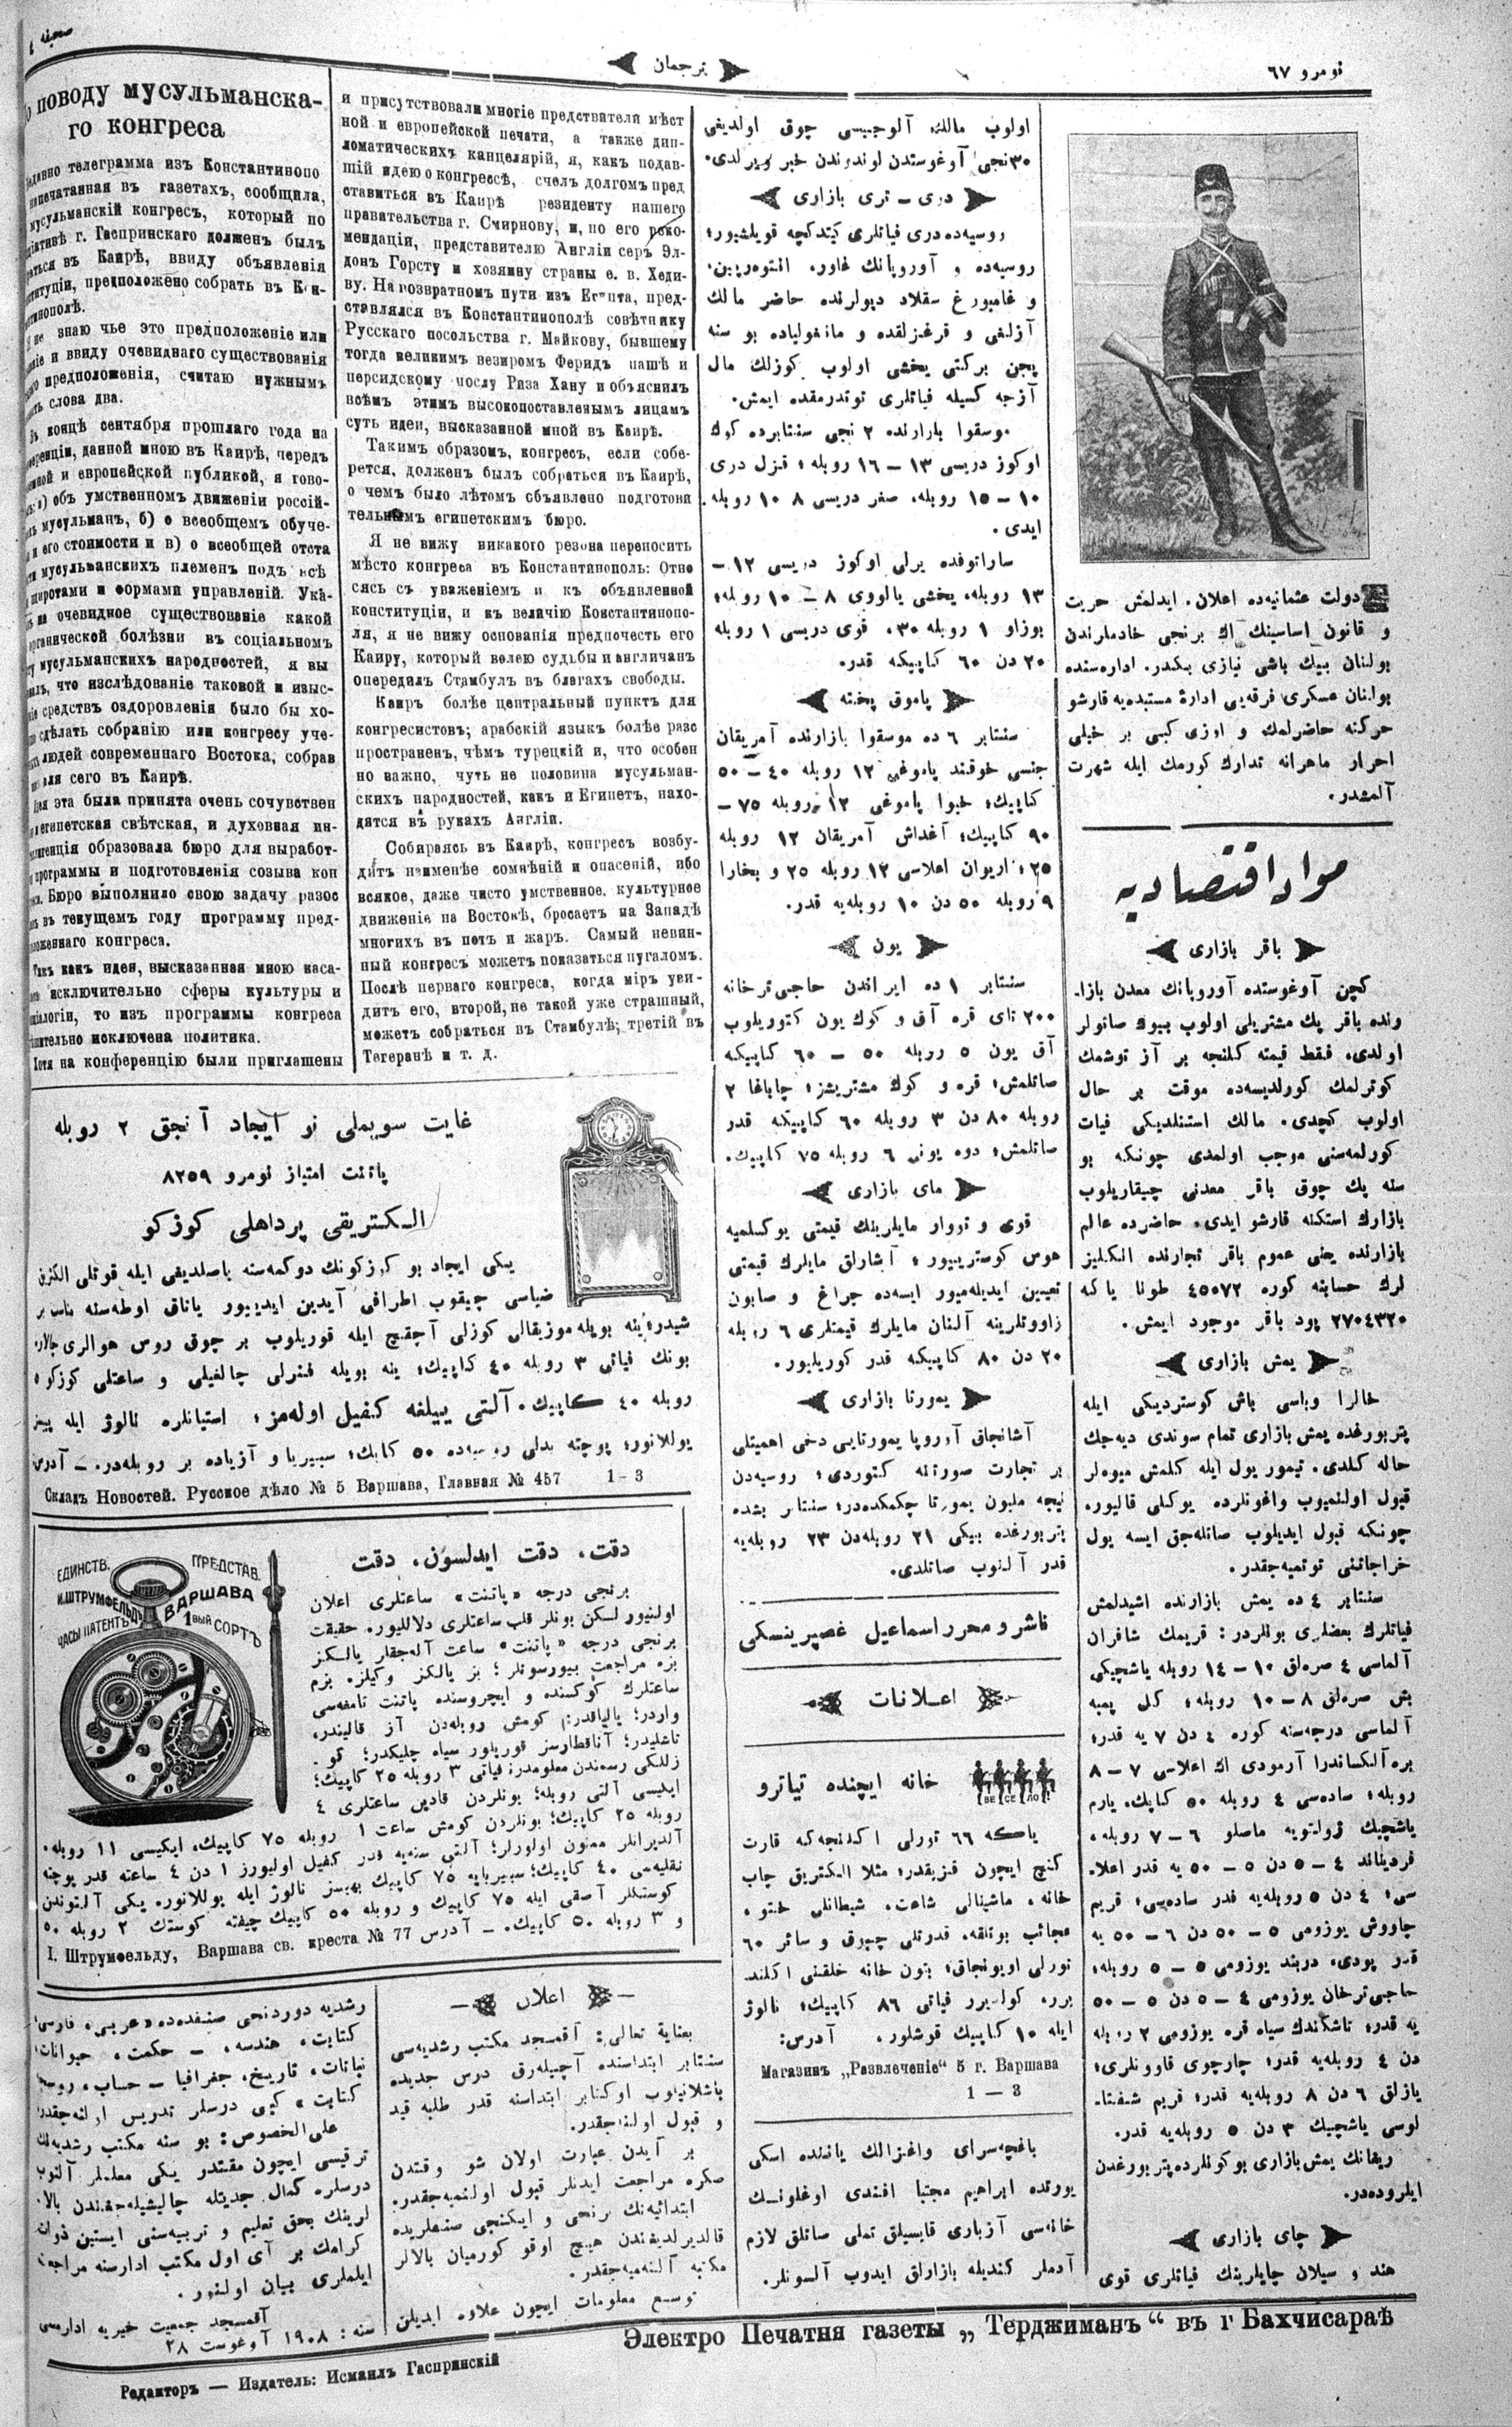 نومرو ٦٧
ترجمان
صحيفه ٤
دولت عثمانيه‌ده اعلان ايدلمش حريت
و قانون اساسينك اك برنجى خادملرندن
بولنان بيك باشى نيازى بكدر. اداره‌سنده
بولنان عسكرى فرقه‌يى ادارۀ مستبديه قارشو
حركته حاضرلمك و اوزى كبى بر خيلى
احرار ماهرانه تدارك كورمك ايله شهرت
آلمشدر.
مواد اقتصاديه
باقر بازارى
كچن آوغوستده آوروپانك معدن بازا-
رنده باقر پك مشتريلى اولوب بيوك صاتولر
اولدى. فقط قيمته كلنجه بر آز توشمك
كوترلمك كورولديسه‌ده موقت بر حال
اولوب كچدى. مالك استنلديكى فيات
كورلمه‌سنى موجب اولمدى چونكه بو
سنه پك چوق باقر معدنى چيقاريلوب
بازارك استكنه قارشو ايدى. حاضرده عالم
بازارنده يعنى عموم باقر تجارنده انكليز
لرك حسابنه كوره ٤٥٠٧٢ طونا ياكه
٢٧٠٤٣٢٠ پود باقر موجود ايمش.
يمش بازارى
خالرا وباسى باش كوسترديكى ايله
پتربورغده يمش بازارى تمام سوندى ديه‌جك
حاله كلدى. تيمور يول ايله كلمش ميوه‌لر
قبول اولنميوب واغونلرده يوكلى قاليور.
چونكه قبول ايديلوب صاتله‌جق ايسه يول
خراجاتنى توتميه‌جقدر.
سنتابر ٤ ده يمش بازارنده اشيدلمش
فياتلرك بعضلرى بونلردر: قريمك شافران
آلماسى ٤ صره‌لق ١٠ – ١٤ روبله ياشچيكى
بش صره‌لق ٨ – ١٠ روبله؛ كل پمبه
آلماسى درجه‌سنه كوره ٤ دن ٧ يه قدر؛
بره آلكساندرا آرمودى اك اعلاسى ٧ – ٨
روبله؛ ساده‌سى ٤ روبله ٥٠ كاپك. يارم
فرديناند ٤ – ٥ دن ٥ – ٥٠ يه قدر اعلا-
سى؛ ٤ دن ٥ روبله‌يه قدر ساده‌سى؛ قريم
چاووش يوزومى ٥ – ٥٠ دن ٦ – ٥٠ يه
قدر پودى. دربند يوزومى ٥ – ٥ روبله؛
حاجى ترخان يوزومى ٤ – ٥ دن ٥ – ٥٠
يه قدر؛ تاشكندك سياه قره يوزومى ٢ روبله
دن ٤ روبله‌يه قدر؛ چارجوى قاوونلرى؛
يازلق ٦ دن ٨ روبله‌يه قدر؛ قريم شفتا-
لوسى ياشچيك ٣ دن ٥ روبله‌يه قدر.
ريغانك يمش بازارى بو كونلرده پتربورغدن
ايلروده‌در.
چاى بازارى
هند و سيلان چايلرينك فياتلرى قوى
اولوب مالك آلوجيسى چوق اولديغى
٣٠نجى آوغوستدن لوندوندن خبر ويرلدى.
درى – ترى بازارى
روسيه‌ده درى فياتلرى كيتدكچه قويلشيور؛
روسيه‌ده و آوروپانك
و غامبورغ سقلاد ديولرنده حاضر مالك
آزلغى و قرغزلقده و مانغولياده بو سنه
پچن بركتى يخشى اولوب كوزلك مال
آزجه كسيله فياتلرى توندرمقده ايمش.
موسقوا بازارنده ٢ نجى سنتابرده كوك
اوكوز دريسى ١٣ – ١٦ روبله؛ قزل درى
١٠ – ١٥ روبله. صغر دريسى ٨ ١٠ روبله
ايدى.
ساراتوفده يرلى اوكوز دريسى ١٢ –
١٣ روبله، يخشى يالووى ٨ – ١٠ روبله؛
بوزاو ١ روبله ٣٠. قوى دريسى ١ روبله
٢٠ دن ٦٠ كاپيكه قدر.
پاموق پخته
سنتابر ٦ ده موسقوا بازارنده آمريقان
جنسى خوقند پاموغى ١٢ روبله ٤٠ – ٥٠
كاپيك؛ خيوا پاموغى ١٢ روبله ٧٥ –
٩٠ كاپيك؛ آغداش آمريقان ١٢ روبله
٢٥؛ اريوان اعلاسى ١٢ روبله ٢٥ و بخارا
٩ روبله ٥٠ دن ١٠ روبله‌يه قدر.
يون
سنتابر ١ ده ايراندن حاجى ترخانه
٢٠٠ تاى قره آق و كوك يون كتوريلوب
آق يون ٥ روبله ٥٠ – ٦٠ كاپيكه
صاتلمش؛ قره و كوك مشتريشز؛ چاباغا ٢
روبله ٨٠ دن ٣ روبله ٦٠ كاپيكه قدر
صاتلمش؛ دوه يونى ٦ روبله ٧٥ كاپيك.
ماى بازارى
قوى و تووار مايلرينك قيمتى يوكسلميه
هوس كوستريييور؛ آشارلق مايلرك قيمتى
تعيين ايديله‌ميور ايسه‌ده چراغ و صابون
زاووتلرينه آلنان مايلرك قيمتلرى ٦ روبله
٢٠ دن ٨٠ كاپيكه قدر كوريليور.
يمورتا بازارى
آشانجاق آوروپا يمورتايسى دخى اهميتلى
بر تجارت صورتنه كتوردى؛ روسيه‌دن
نيچه مليون يمورتا چكمكده‌در؛ سنتابر بشده
پتربورغده بيكى ٢١ روبله‌دن ٢٣ روبله‌يه
قدر آلنوب صاتلدى.
ناشر و محرر اسماعيل غصپرينسكى
اعلانات
خانه ايچنده تياترو
ВЕ СЕ ЛО!
ياكه ٦٦ تورلى اكلنجه‌كه قارت
كنج ايچون قزيقدر؛ مثلا الكتريق چاپ
خانه، ماشينالى شاعت، شيطانلى
عجائب بوتلقه، قدرتلى چبوق و سائر ٦٠
تورلى اويونجاق؛ بتون خانه خلقنى اكلند-
برر. كوليرر فياتى ٨٦ كاپيك؛ نالوژ
ايله ١٠ كاپيك قوشلور. آدرس:
Магазинъ „Развлеченіе“ 5 г. Варшава
1 — 3
باغچه‌سراى واغزالك ياننده اسكى
يورتده ابراهيم مجتبا افندى اوغلونك
خانه‌سى آزبارى قايسيلق تملى صاتلق لازم
آدملر كنديله بازارلق ايدوب آلسونلر.
О поводу мусульманска-
го конгреса
Недавно телеграмма изъ Константинопо
напечатанная въ газетахъ, сообщила,
мусульманскій конгресъ, который по
иціативѣ г. Гаспринскаго долженъ былъ
раться въ Каирѣ, ввиду объявленія
ституціи, предположено собрать въ Кон-
стантинополѣ.
Я не знаю чье это предположеніе или
ніе и ввиду очевиднаго существованія
ого предположенія, считаю нужнымъ
ать слова два.
Въ концѣ сентября прошлаго года на
ференціи, данной мною въ Каирѣ, чередъ
мной и европейской публикой, я гово-
ъ: а) объ умственномъ движеніи россій-
хъ мусульманъ, б) о всеобщемъ обуче-
и его стоимости и в) о всеобщей отста
ти мусульманскихъ племенъ подъ всѣ
и широтами и формами управленій. Ука-
въ на очевидное существованіе какой
органической болѣзни въ соціальномъ
ту мусульманскихъ народностей, я вы
залъ, что изслѣдованіе таковой и изыс-
ніе средствъ оздоровленія было бы хо-
шо сдѣлать собранію или конгресу уче-
ыхъ людей современнаго Востока, собрав
ш для сего въ Каирѣ.
Идея эта была принята очень сочувствен
и египетская свѣтская, и духовная ин-
лигенція образовала бюро для выработ-
и программы и подготовленія созыва кон
реса. Бюро выполнило свою задачу разос
авъ въ текущемъ году программу пред-
оложеннаго конгреса.
Такъ какъ идея, высказанная мною каса-
исключительно сферы культуры и
ціалогіи, то изъ программы конгреса
шительно исключена политика.
Хотя на конференцію были приглашены
и присутствовали многіе предствители мѣст
ной и европейской печати, а также дип-
ломатическихъ канцелярій, я, какъ подав-
шій идею о конгрессѣ, счелъ долгомъ пред
ставиться въ Каирѣ резиденту нашего
правательства г. Смирнову, и, по его реко-
мендаціи, представителю Англіи серъ Эл-
донъ Горсту и хозяину страны е. в. Хеди-
ву. На возвратномъ пути изъ Египта, пред-
ставлялся въ Константинополѣ совѣтнику
Русскаго посольства г. Майкову, бывшему
тогда великимъ везиромъ Феридъ пашѣ и
персидскому послу Риза Хану и объяснилъ
всѣмъ этимъ высокопоставленымъ лицамъ
суть идеи, высказанной мной въ Каирѣ.
Такимъ образомъ, конгресъ, если собе-
рется, долженъ былъ собраться въ Каирѣ,
о чемъ было лѣтомъ объявлено подготови
тельнымъ египетскимъ бюро.
Я не вижу никакого резона переносить
мѣсто конгреса въ Константинополь: Отно
сясь съ уваженіемъ и къ объявленной
конституціи, и къ величію Константинопо-
ля, я не вижу основанія предпочесть его
Каиру, который волею судьбы и англичанъ
опередилъ Стамбулъ въ благахъ свободы.
Каиръ болѣе центральный пунктъ для
конгресистовъ; арабскій языкъ болѣе расс
пространенъ, чѣмъ турецкій и, что особен
но важно, чуть не половина мусульман-
скихъ народностей, какъ и Египетъ, нахо-
дятся въ рукахъ Англіи.
Собираясь въ Каирѣ, конгресъ возбу-
дитъ наименѣе сомнѣній и опасеній, ибо
всякое, даже чисто умственное, культурное
движеніе на Востокѣ, бросаетъ на Западѣ
многихъ въ потъ и жаръ. Самый невин-
ный конгресъ можетъ показаться пугаломъ.
Послѣ перваго конгреса, когда міръ уви-
дитъ его, второй, не такой уже страшный,
можетъ собраться въ Стамбулѣ; третій въ
Тегеранѣ и т. д.
غايت سويملى نو ايجاد آنجق ٢ روبله
پاتنت امتياز نومرو ٨٢٥٩
الكتريقى پرداهلى كوزكو
يكى ايجاد بو كوزكونك دوكمه‌سنه باصلديغى ايله قوتلى الكتريق
ضياسى چيقوب اطرافى آيدين ايدييور ياتاق اوطه‌سنه مناسب بر
شيدر؛ ينه بويله موزيقالى كوزلى آچقيچ ايله قوريلوب بر چوق روس هوالرى چالار.
بونك فياتى ٣ روبله ٤٠ كاپيك؛ ينه بويله فنرلى چالغيلى و ساعتلى كوزكو ٥
روبله ٤٠ كاپيك. آلتى ييلغه كفيل اوله‌مز؛ استيانلره نالوژ ايله
يوللانور؛ پوچته بدلى روسيه‌ده ٥٠ كاپك؛ سيبريا و آزياده بر روبله‌در. – آدرس
Складъ Новостей. Русское дѣло № 5 Варшава, Главная № 457 1–3
ЕДИНСТВ. ПРЕДСТАВ.
И.ШТРУМФЕЛЬДЪ ВАРШАВА
ЧАСЫ ПАТЕНТЪ 1вый СОРТЪ
دقت، دقت ايدلسون، دقت
برنجى درجه «پاتنت» ساعتلرى اعلان
اولنيور لكن بونلر قلب ساعتلرى دلالليور. حقيقت
برنجى درجه «پاتنت» ساعت آله‌جقلر يالكز
بزه مراجعت بيورسونلر؛ بز يالكز وكيلز. بزم
ساعتلرك كوكسنده و ايچروسنده پاتنت نامغه‌سى
روبله ٢٥ كاپيك؛ بونلردن كومش ساعت ١ روبله ٧٥ كاپيك، ايكيسى ١١ روبله.
و ٣ روبله ٥٠ كاپيك. – آدرس
І. Штрумфельду, Варшава св. креста № 77
اعلان
بعناية تعالى: آقمسجد مكتب رشديه‌سى
سنتابر ابتداسنده آچيله‌رق درس جديده
باشلانيلوب اوكتابر ابتداسنه قدر طلبه قيد
و قبول اولنه‌جقدر.
بر آيدن عبارت اولان شو وقتدن
صكره مراجعت ايدنلر قبول اولنميه‌جقدر.
ابتدائيه‌نك برنجى و ايكنجى صنفلريده
قالديرلديغندن هيچ اوقو كورميان بالالر
مكتبه آلنه‌ميه‌جقدر.
توسع معلومات ايچون علاوه ايديلن
رشديه دوردنجى صنفده‌ده «عربى، فارسى
كتابت، هندسه، – حكمت، حيوانات
نباتات، تاريخ، جغرافيا – حساب، روسجا
كتابت» كبى درسلر تدريس اولنه‌جقدر
على الخصوص: بو سنه مكتب رشديه‌نك
ترقيسى ايچون مقتدر يكى معلملر آلنوب
درسلره كمال جديتله چاليشيله‌جغندن بالا-
لرينك بحق تعليم و تربيه‌سنى ايستين ذوات
كرامك بر آى اول مكتب ادارسنه مراجعت
ايلملرى بيان اولنور.
آقمسجد جمعيت خيريه اداره‌سى
سنه: ١٩٠٨ آوغوست ٢٨
Электро Печатня газеты „Терджиманъ“ въ г Бахчисараѣ
Редакторъ — Издатель: Исмаилъ Гаспринскій